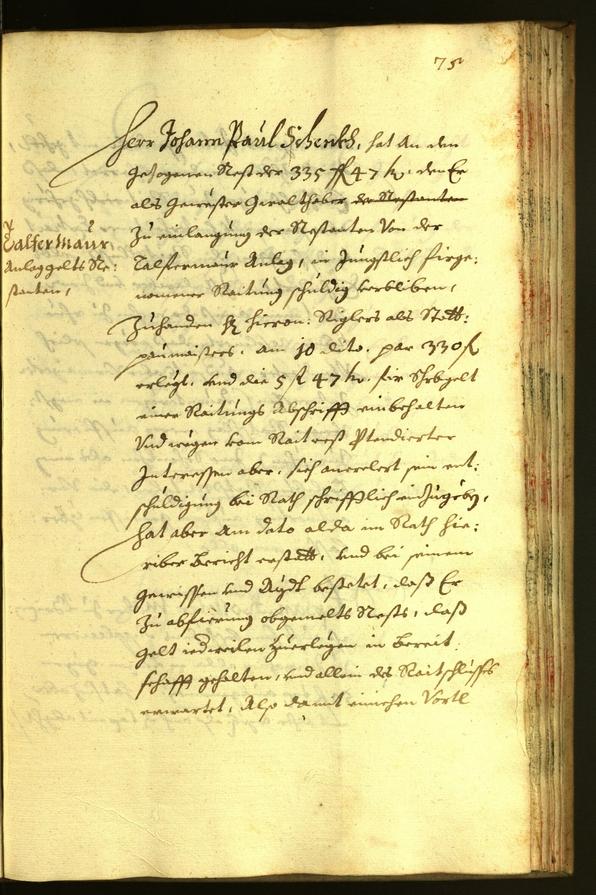 75
Herr Johann Paul Schenkh, hat An den
gezogenen Rest der 335 fl 47 kr. den Er
als Gewester Gwalthaber der Restanten
Zu einlangung der Restanten Von der
Talfermaur Anlag, in Jüngstlich firge:
nomener Raitung schuldig verbliben,
Zuhanden Hr Hieron: Riglers als Statt:
paumaisters, am 10 dito, par 330 fl
erlegt, und die 5 fl 47 kr. für Schrbgelt
einer Raitungs Abschrifft einbehalten
Und wegen vom Rait rest Ptendierter
Interessen aber, sich anerclert sein ent:
schuldigung bei Rath schrifftlich einzugeben,
hat aber Am dato alda im Rath hie:
riber Bericht erstatt, und bei seinem
gewissen und Aydt bestetet, daß Er
Zu abfierung obgemelts Rests, daß
gelt iedweilen Zuerlegen in Bereit:
schafft gehalten, und allein des Raitschlusses
erwartet, Also damit einichen Vortl
Talfermaur
Anlaggelts Re:
stanten,